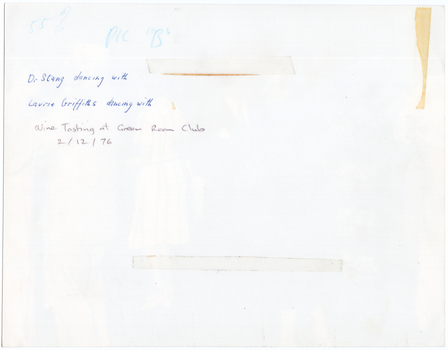 55%
PIC "B"
Di Stang dancing with
Laurie Griffiths dancing with
Wine Tasting at Green Room Club
2/12/76